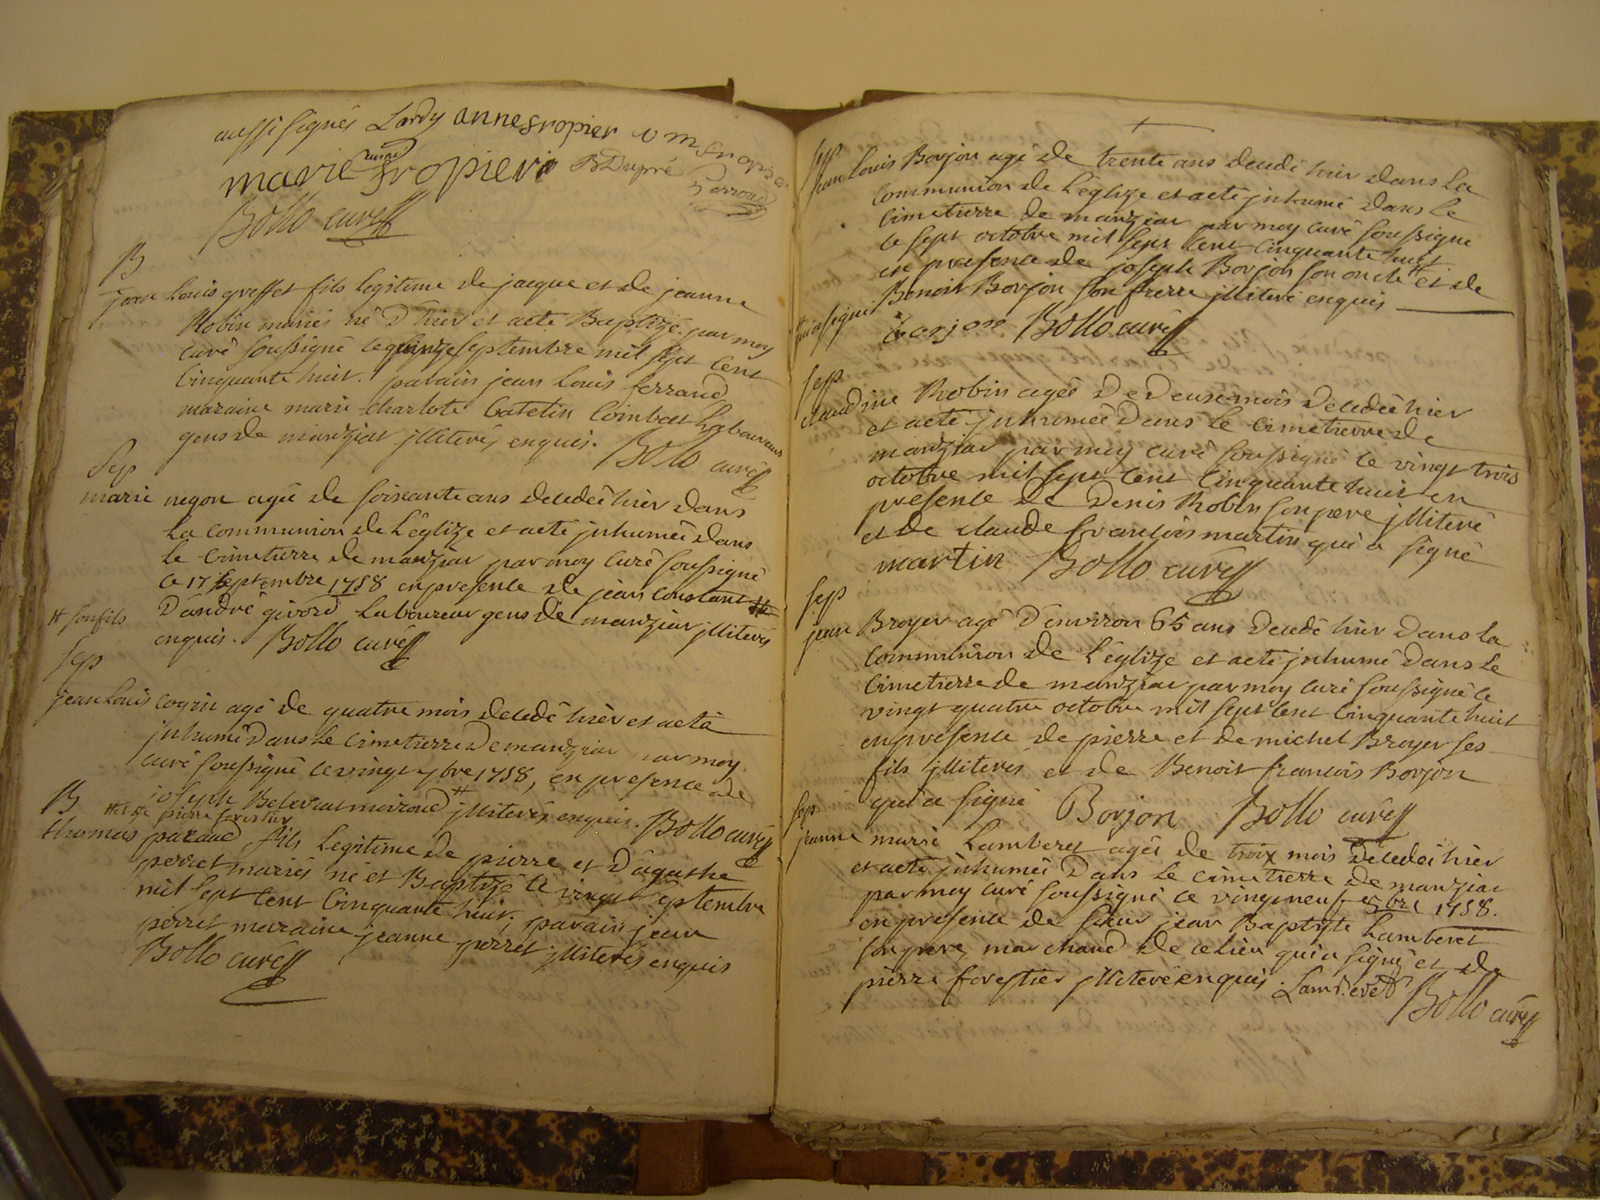 aussi signés Lardy anne fropier
marie fropier BDupré Perroud
Bollo curé
B
jean Louis greffet fils legitime de jacque et de jeanne
Robin mariés né d'hier et aeté Baptizé par moy
curé soussigné le quinze septembre mil sept cent
cinquante huit. parain jean Louis ferrand
maraine marie charlote Catelin Laboureurs
gens de manziat illiterés enquis. Bollo curé
Sep
marie negon agée de soixante ans decedée hier dans
La communion de L'églize et aeté inhumée dans
le cimetierre de manziat par moy curé soussigné
le 17 septembre 1758 en presence de jean constant #
# son fils
D'andré givord Laboureur gens de manziat illiterés
enquis. Bollo curé
Sep
jean Louis cogin agé de quatre mois decedé hier et aeté
inhumé Dans Le cimetierre De manziat par moy
curé soussigné le vingt 7bre 1758, en presence de
joseph illiterés enquis. Bollo curé
# et de pierre forestier
B
thomas paraud fils Legitime de pierre et D'agathe
perret mariés né et Baptizé le vingt septembre
mil sept cent cinquante huit, parain jean
perret maraine jeanne perret illiterés enquis
Bollo curé
Sep
jean Louis Borjon agé de trente ans decedé hier dans La
communion de L'églize et aeté inhumé dans le
cimetierre de manziat par moy curé soussigné
le sept octobre mil sept cent cinquante huit
en presence de joseph Borjon son oncle # et de
Benoit Borjon son frere illiteré enquis
# qui a signé
Borjon Bollo curé
Sep
claudine Robin agée De Deux mois decedée hier
et aeté inhumée Dans Le cimetierre de
manziat par moy curé soussigné le vingt trois
octobre mil sept cent cinquante huit en
presence de Denis Robin son pere illiteré
et de claude francois martin qui a signé
martin Bollo curé
Sep
jean Broyer agé D'environ 65 ans decedé hier Dans La
communion de L'églize et aeté inhumé Dans Le
cimetierre de manziat par moy curé soussigné le
vingt quatre octobre mil sept cent cinquante huit
en presence de pierre et de michel Broyer ses
fils illiterés et de Benoit francois Borjon
qui a signé Borjon Bollo curé
Sep
jeanne marie Lamberet agée de troix mois decedée hier
et aeté inhumée Dans Le cimetierre de manziat
par moy curé soussigné le vingt neuf 8bre 1758.
en presence de sieur jean Baptiste Lamberet
son pere marchand de ce lieu qui a signé et de
pierre forestier illiteré enquis. Lamberet
Bollo curé